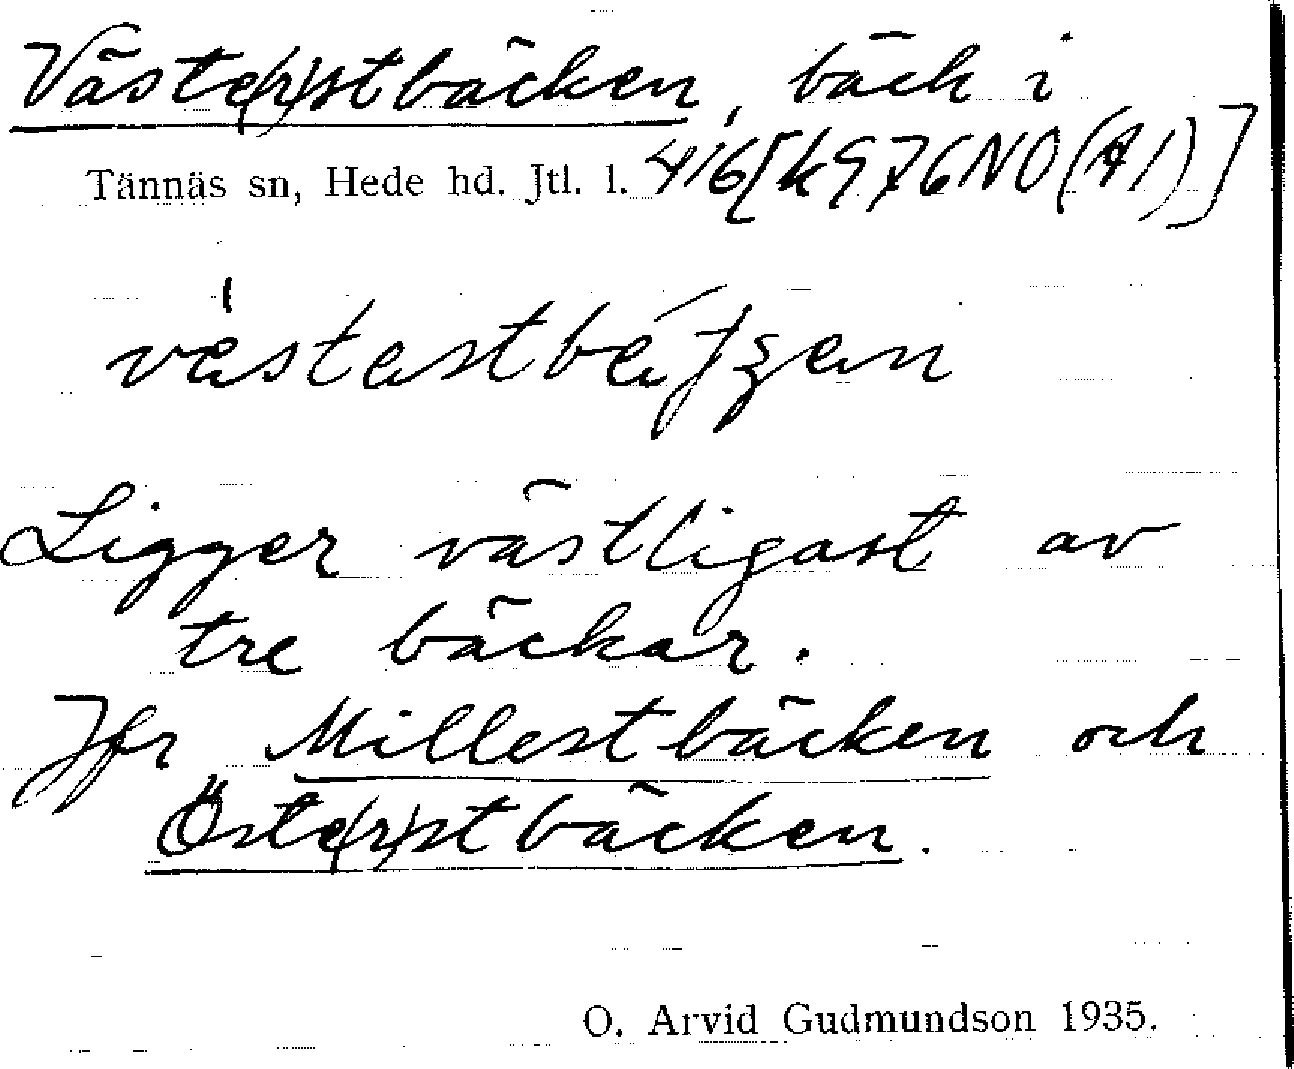 Väste(r)stbäcken, bäck i
Tännäs sn, Hede hd. Jtl. l. 416[k976NO(A1)]
Ligger västligast av
tre bäckar.
Jfr Millestbäcken och
Öste(r)stbäcken.
O. Arvid Gudmundson 1935.